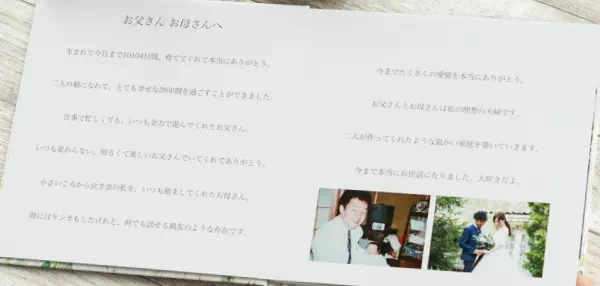 お父さん お母さんへ
生まれて今日まで10104日間、育ててくれて本当にありがとう。
二人の娘になれて、とても幸せな28年間を過ごすことができました。
仕事で忙しくても、いつも全力で遊んでくれたお父さん。
いつも変わらない、明るくて楽しいお父さんでいてくれてありがとう。
小さいころから泣き虫の私を、いつも励ましてくれたお母さん。
時にはケンカもしたけれど、何でも話せる親友のような存在です。
今までたくさんの愛情を本当にありがとう。
お父さんとお母さんは私の理想の夫婦です。
二人が作ってくれたような温かい家庭を築いていきます。
今まで本当にお世話になりました。大好きだよ。